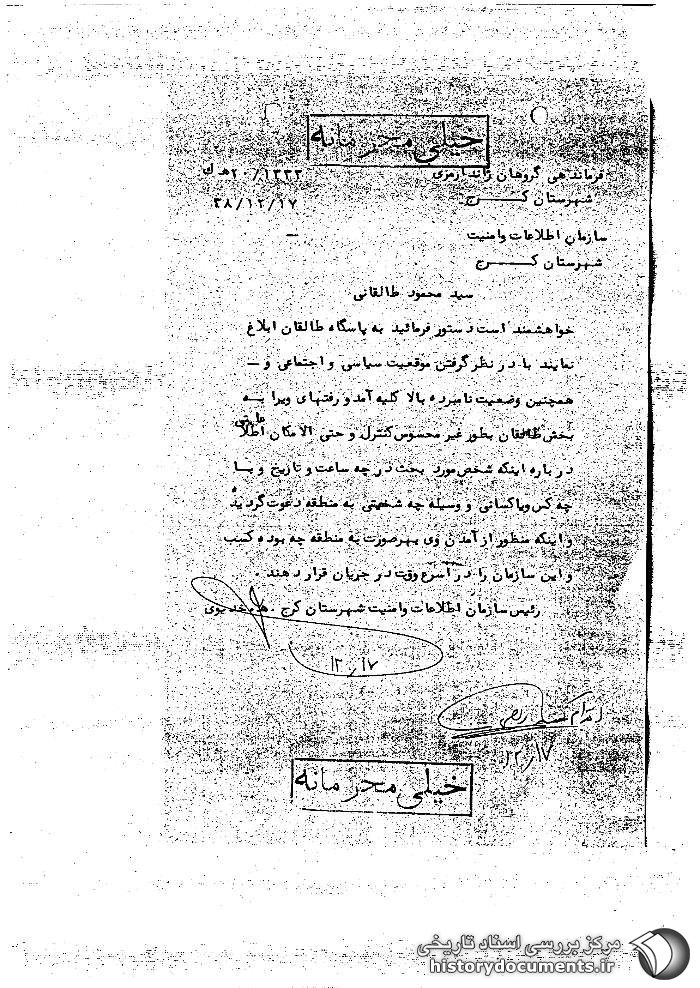 خیلی محرمانه
فرماندهی گروهان ژاندارمری ۲۰/۱۳۳۳ هـ ك
شهرستان کــــرج ۳۸/۱۲/۱۷
سازمان اطلاعات وامنیت —
شهرستان کــــرج
سید محمود طالقانی
خواهشمند است دستور فرمائید به پاسگاه طالقان ابلاغ
نمایند با در نظر گرفتن موقعیت سیاسی و اجتماعی و —
همچنین وضعیت نامبرده بالا کلیه آمد و رفتهای ویرا بــه
بخش طالقان بطور غیر محسوس کنترل و حتی الامکان اطلاعاتی
در باره اینکه شخص مورد بحث در چه ساعت و تاریخ و بــا
چه کس ویا کسانی و وسیله چه شخصی به منطقه دعوت گردیده
و اینکه منظور از آمدن وی بهر صورت به منطقه چه بوده کسب
و این سازمان را در اسرع وقت در جریان قرار دهند .
رئیس سازمان اطلاعات وامنیت شهرستان کرج .
۱۲/۱۷
۱۲/۱۷
خیلی محرمانه
مرکز بررسی اسناد تاریخی
historydocuments.ir